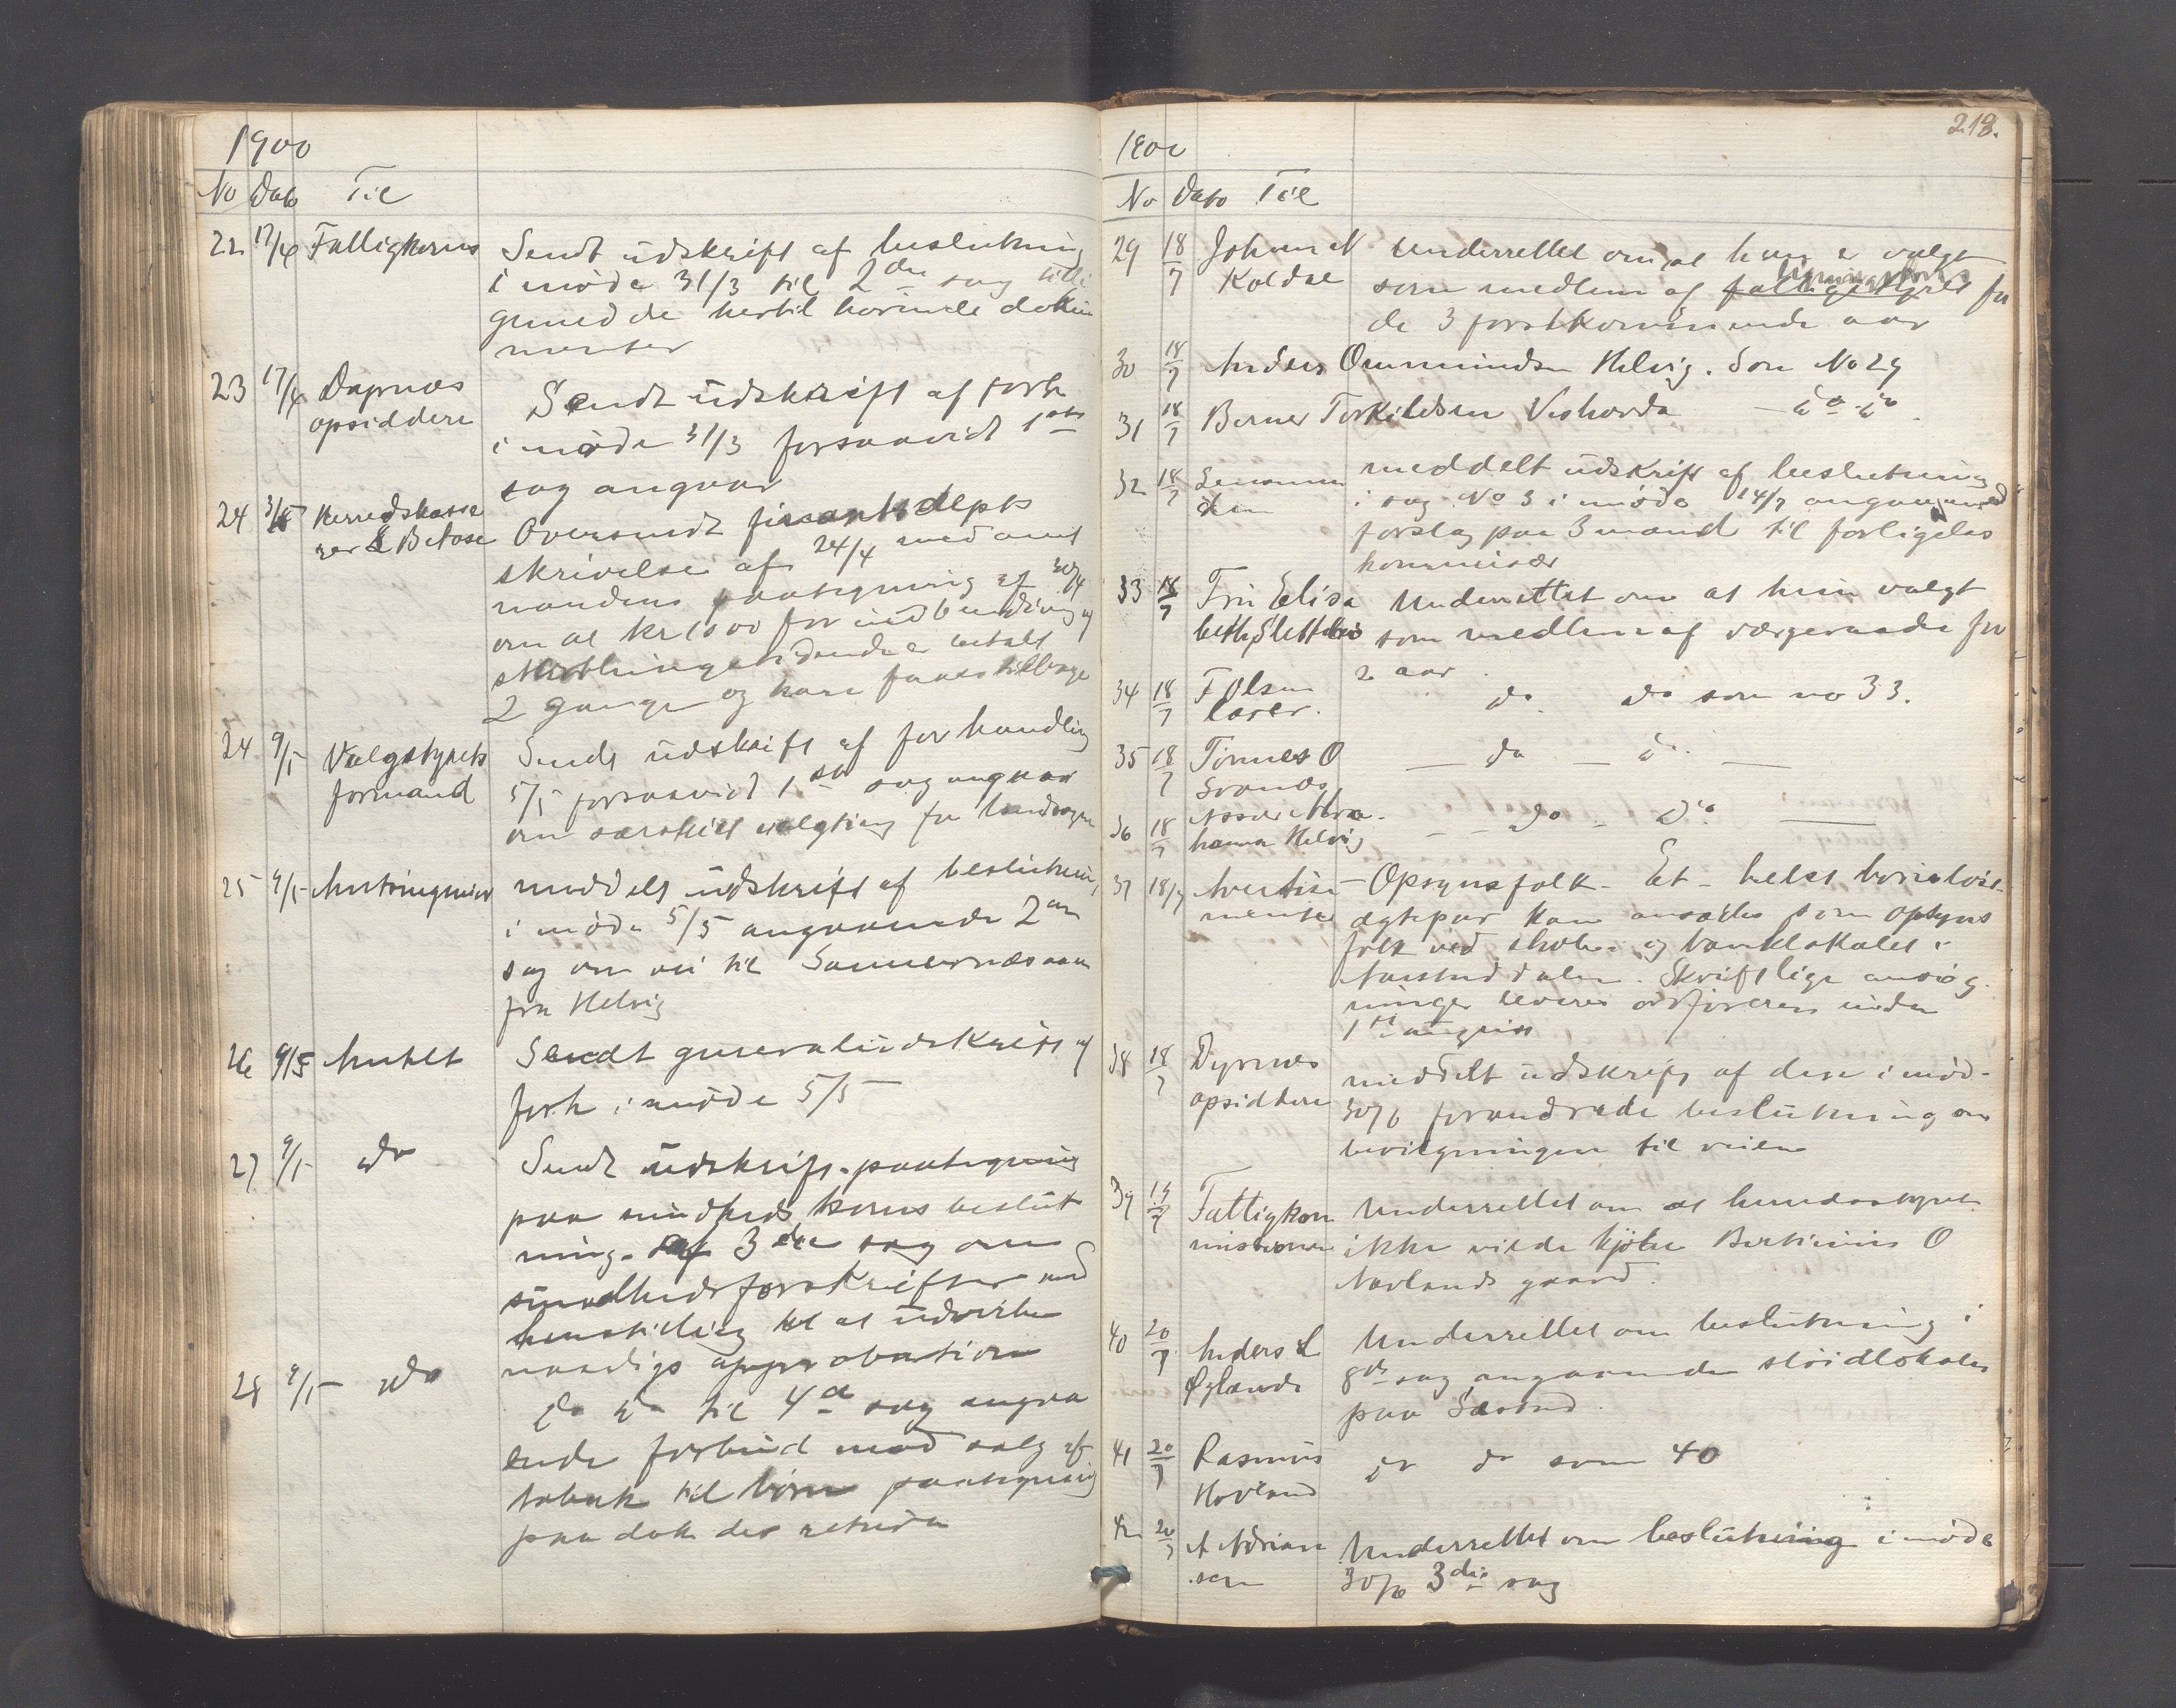 1900
No Dato Til
22 17/4 Fattigkoms Sendt udskrift af beslutning
i møde 31/3 til 2den sag tilli
gemed de hertil hørende doku
menter
23 17/4 Dyrnæs Sendt udskrift af forh
opsiddere i møde 31/3 forsaavidt 1ste
sag angaar
24 3/5 Herredskasse Oversendt finantsdepts
rer Betose skrivelse af 24/4 med amt
mandens paategning af 30/4
om at kr 1000 for indbinding af
storthingstidende er betalt
2 gange og kan faaes tilbage
24 9/5 Valgstyrets Sendt udskrift af forhandling
formand 5/5 forsaavid 1ste sag angaar
om særskilt valgting for landsogn
25 9/5 Amtsingeniør meddelt udskrift af beslutning
i møde 5/5 angaaende 2den
sag om vei til
fra Helvig
26 9/5 Amtet Sendt generaludskrift af
forh i møde 5/5
27 9/5 do Sendt udskrift paategning
paa sundheds koms beslut
ning 3die sag om
sundhedsforskrifter med
henstilling til at udvirke
naadigs approbation
28 9/5 do do do til 4de sag angaa
ende forbud mod salg af
tobak til børn paategning
paa dok des retur
1900
218.
No Dato Til
29 18/7 Johan N Underrettet om at han er valgt
Koldal som medlem af fattigstyret for
de 3 førstkommende aar
30 18/7 Anders Ommundsen Helvig. Som No 29
31 18/7 Berner Torkildsen Veshovda do do
32 18/7 Lensman meddelt udskrift af beslutning
den i sag No 3 i møde 14/7 angaaende
forslag paa 3 mand til forligelses
kommisær
33 18/7 Fru Elisa Underrettet om at hun valgt
beth Slettebø som medlem af værgeraadet for
2 aar
34 18/7 F Olsen do do som no 33.
lærer.
35 18/7 Tønnes O — do — do —
Svanes
36 18/7 Assær Abra- — do — do —
hamsen Helvig
37 18/7 Avertise- Opsynsfolk. Et helst barnløst
mente ægtepar kan ansættes som opsyns
folk ved skole- og banklokalet i
. Skriftlige ansøg-
ninger leveres ordføreren inden
1ste august
38 18/7 Dyrnæs meddelt udskrift af den i møde
opsiddere 30/6 forandrede beslutning om
bevilgningen til veien
39 19/7 Fattigkom Underrettet om at herredsstyret
missionen ikke vilde kjøbe Bertinius O
Nævlands gaard.
40 20/7 Anders L Underrettet om beslutning i
Øglænd 8de sag angaaende sløidlokaler
paa
41 20/7 Rasmus do do som 40
Hovland
42 20/7 A Adrian Underrettet om beslutning i møde
sen 30/6 3die sag